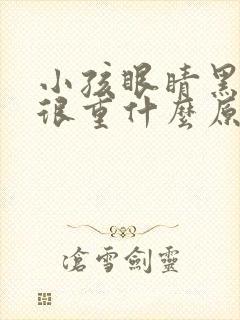 小孩眼睛黑
很重什麼原
滄雪劍靈